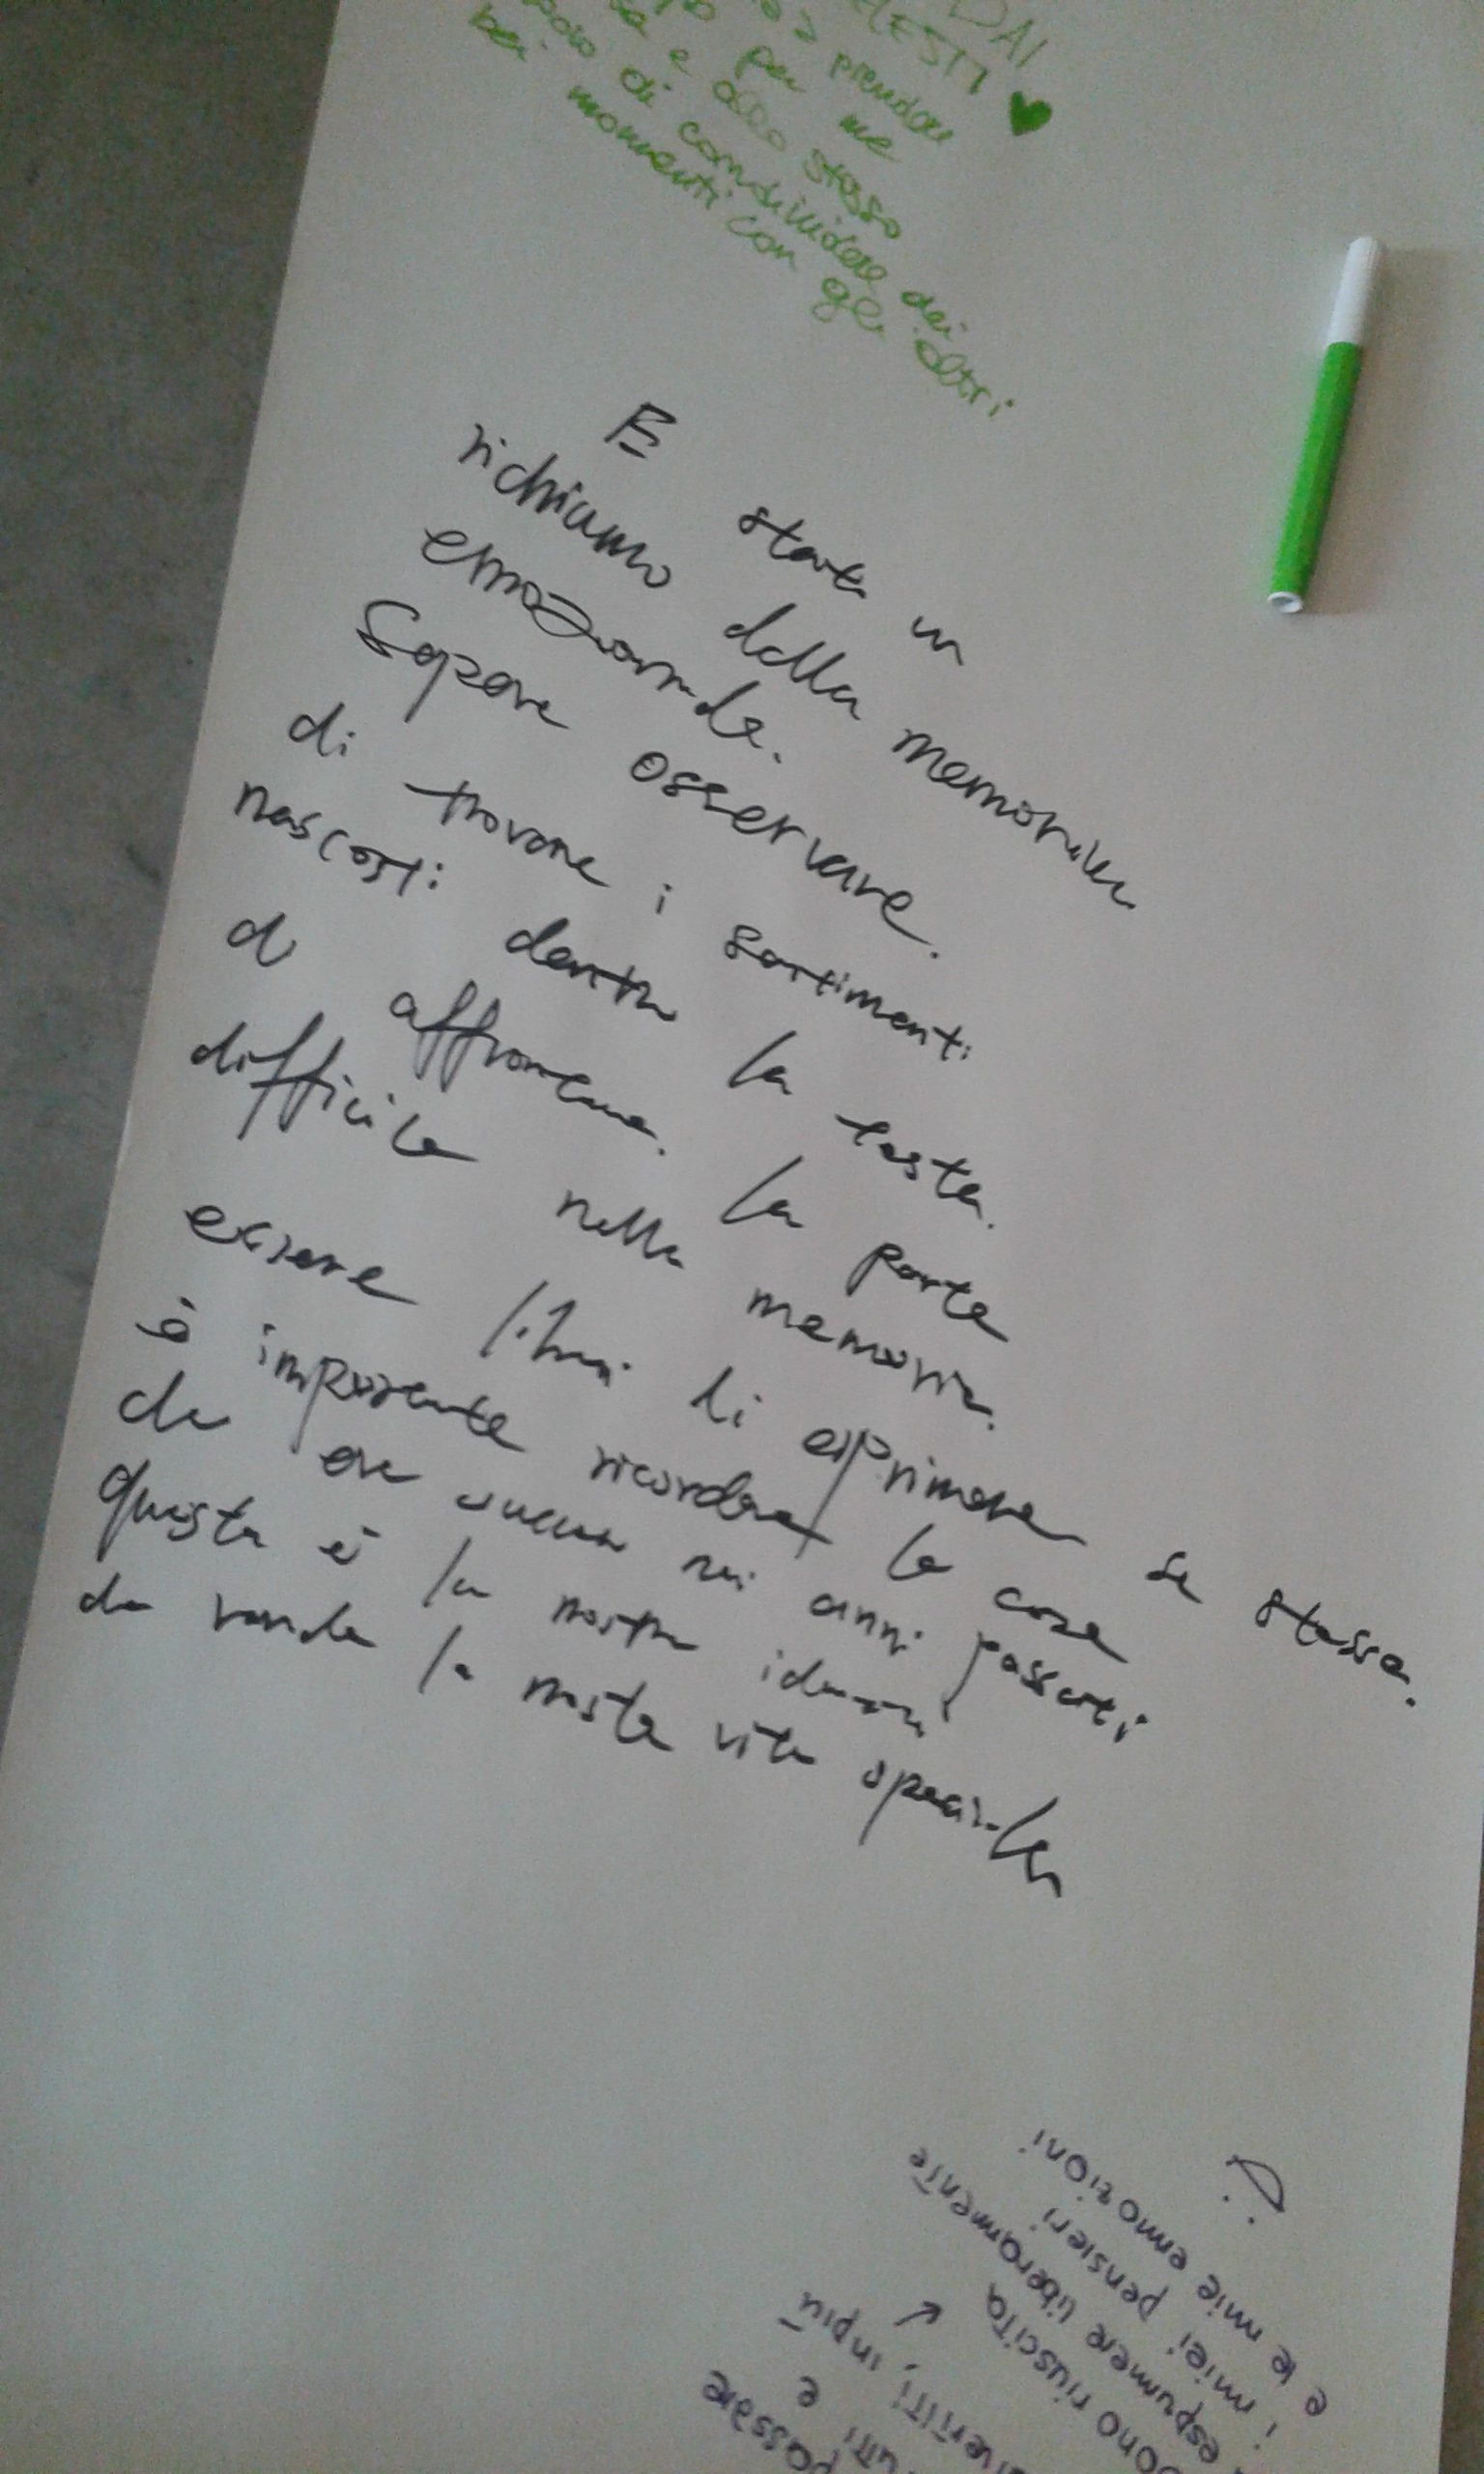 DAI
prendere
per me
e allo stesso
di condividere dei
bei momenti con gli altri
E stata un
richiamo della memoria
emozionale.
Sapere osservare.
di trovare i sentimenti
nascosti dentro la testa.
di affrontare. la parte
difficile nella memoria.
essere liberi di esprimere se stessa.
è importante ricordare le cose
che nei anni passati
questa è la nostra
la nostra vita speciale
passare
e
in più
sono riuscita
esprimere liberamente
i miei pensieri
e le mie emozioni